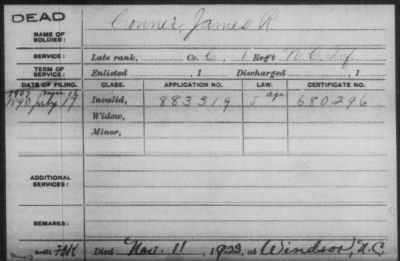 DEAD
NAME OF SOLDIER: Conner, James K.
SERVICE: Late rank, Co. C, 1 Reg't N.C. Inf
TERM OF SERVICE: Enlisted , 1 Discharged , 1
DATE OF FILING. CLASS. APPLICATION NO. LAW. CERTIFICATE NO.
1907 16
1890 July 17 Invalid, 883919 age 680296
Widow,
Minor,
ADDITIONAL SERVICES:
REMARKS:
Died Nov. 11, 1923, at Windsor, N.C.